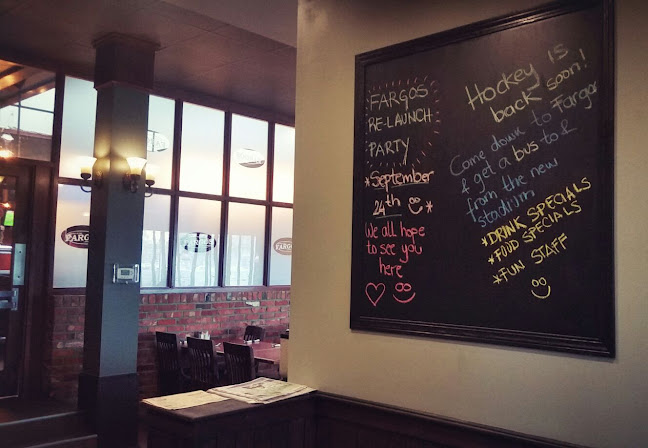 FARGOS
RE-LAUNCH
PARTY
*September
24th ☺*
We all hope
to see you
here
♡ ☺
Hockey is
back soon!
Come down to Fargos
& get a bus to &
from the new
stadium
*DRINK SPECIALS
*FOOD SPECIALS
*FUN STAFF
☺
FARGOS
FARGOS
FARGOS